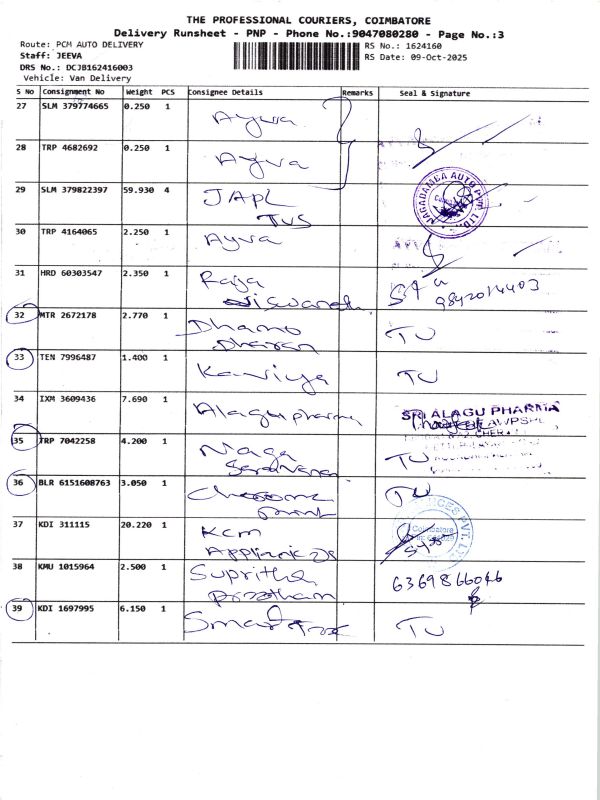 THE PROFESSIONAL COURIERS, COIMBATORE
Delivery Runsheet - PNP - Phone No.:9047080280 - Page No.:3
Route: PCM AUTO DELIVERY RS No.: 1624160
Staff: JEEVA RS Date: 09-Oct-2025
DRS No.: DCJB162416003
Vehicle: Van Delivery
S No Consignment No Weight PCS Consignee Details Remarks Seal & Signature
27 SLM 379774665 0.250 1 Ayva
28 TRP 4682692 0.250 1 Ayva
29 SLM 379822397 59.930 4 JAPL
TVS
NAGADAMBA AUTO PVT. LTD.
30 TRP 4164065 2.250 1 Ayva
31 HRD 60303547 2.350 1 Raja
Viswanath 9842014403
32 MTR 2672178 2.770 1 Dhamo
Dharan TU
33 TEN 7996487 1.400 1 Kaviya TU
34 IXM 3609436 7.690 1 Alagu pharma SRI ALAGU PHARMA
35 TRP 7042258 4.200 1 Naga
TU
36 BLR 6151608763 3.050 1 TU
37 KDI 311115 20.220 1 KCM
Coimbatore
38 KMU 1015964 2.500 1 Supritha
6369866046
39 KDI 1697995 6.150 1 Smart TU